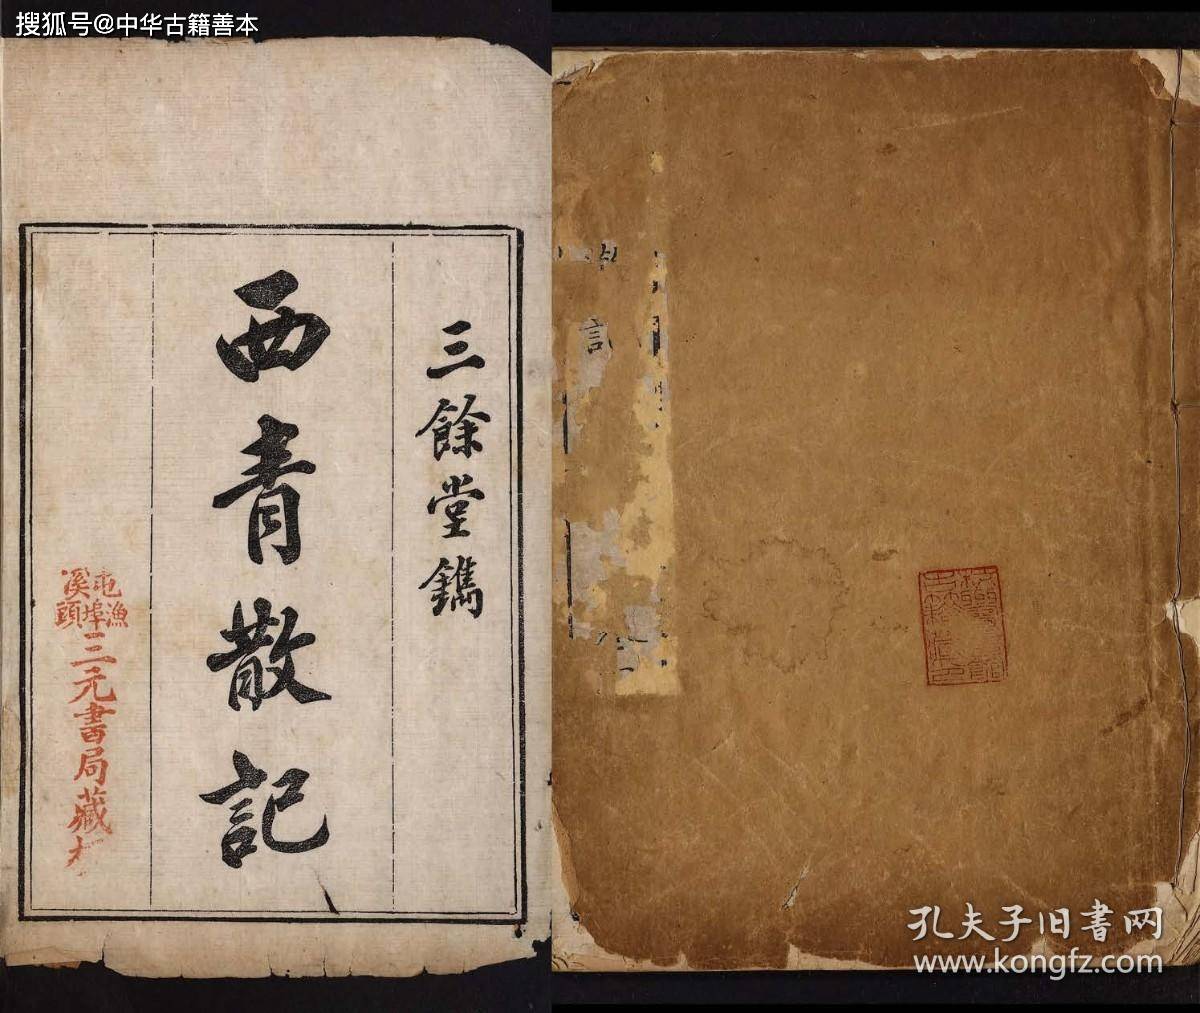 搜狐号@中华古籍善本
三餘堂鐫
西青散記
屯溪
漁埠頭
三元書局藏
記
孔夫子旧书网
www.kongfz.com